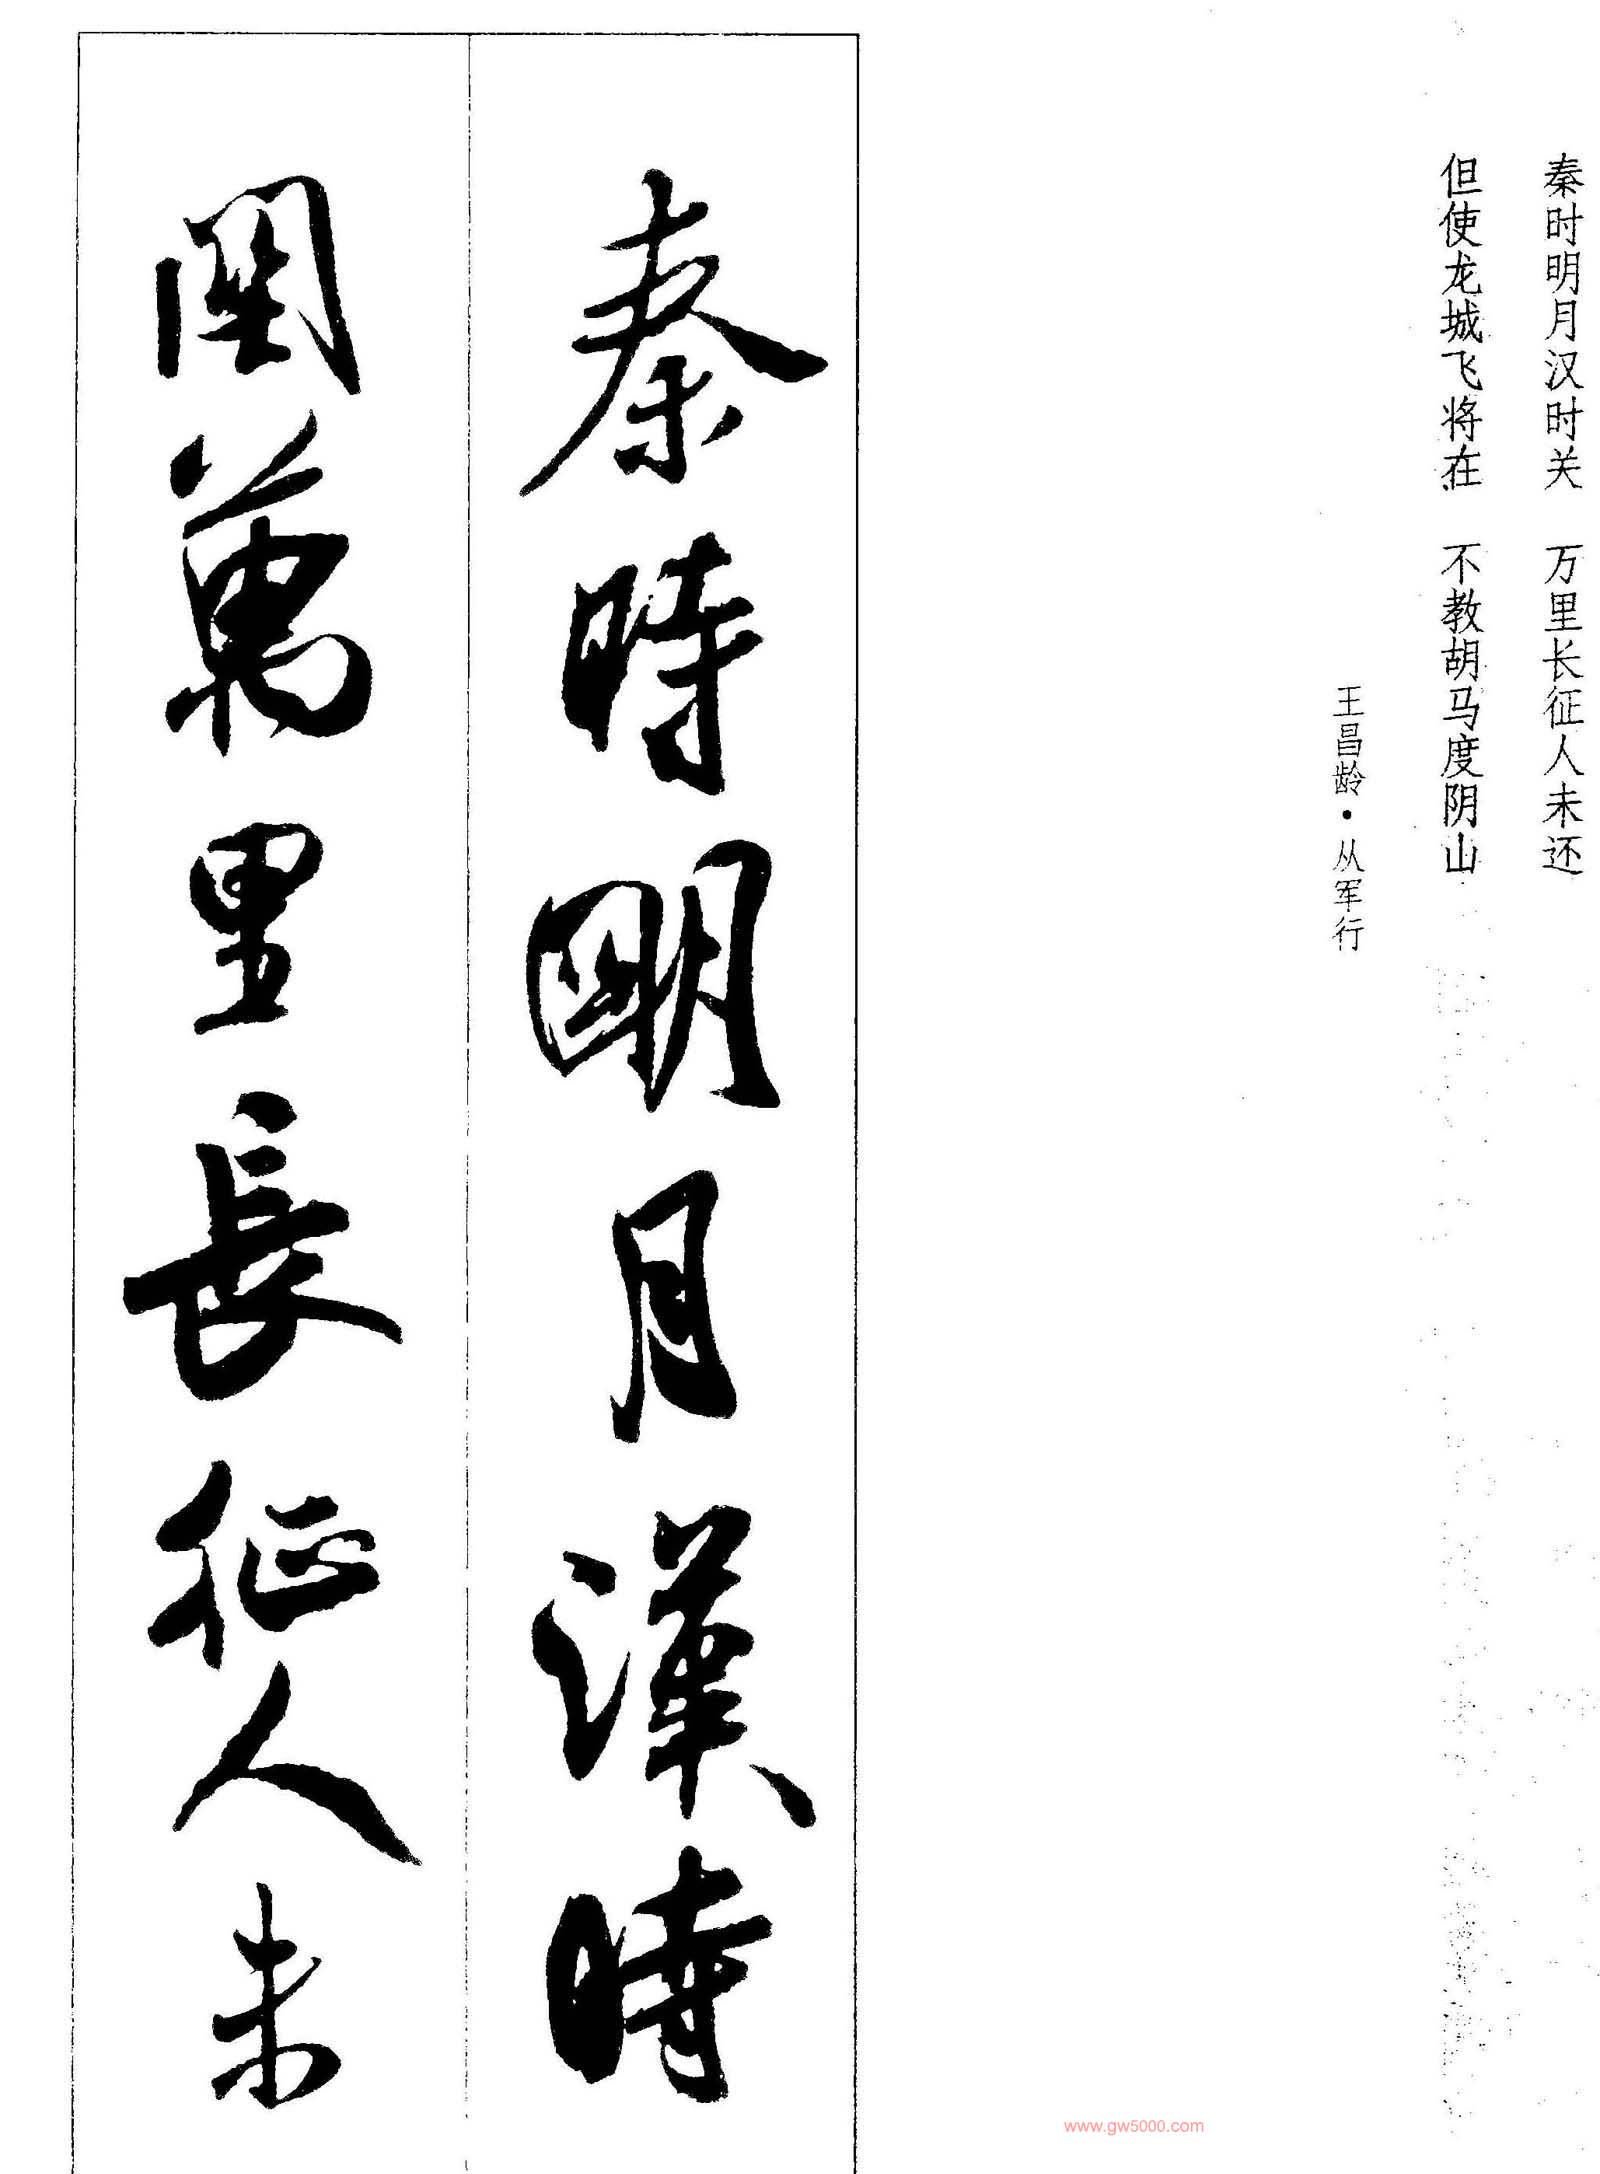 秦时明月汉时关 万里长征人未还
但使龙城飞将在 不教胡马度阴山
王昌龄·从军行
秦時明月漢時
関萬里長征人未
www.gw5000.com